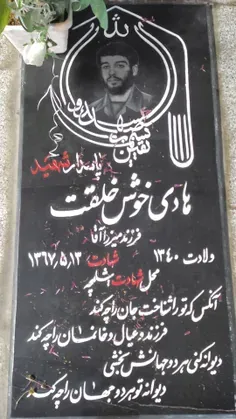 پاسدار شهید
هادی خوش خلقت
فرزند میرزا آقا
ولادت ۱۳۴۰ شهادت ۱۳۶۷,۵,۱۳
محل شهادت اشنویه
آنکس که تو را شناخت جان را چه کند
فرزند و عیال و خانمان را چه کند
دیوانه کنی هر دو جهانش بخشی
دیوانه تو هر دو جهان را چه کند